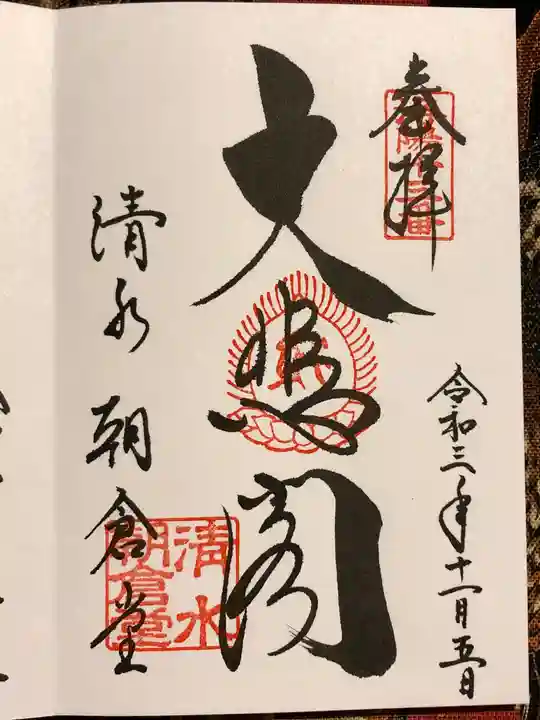 奉拝
令和三年十一月五日
大悲閣
清水朝倉堂
清水
朝倉堂